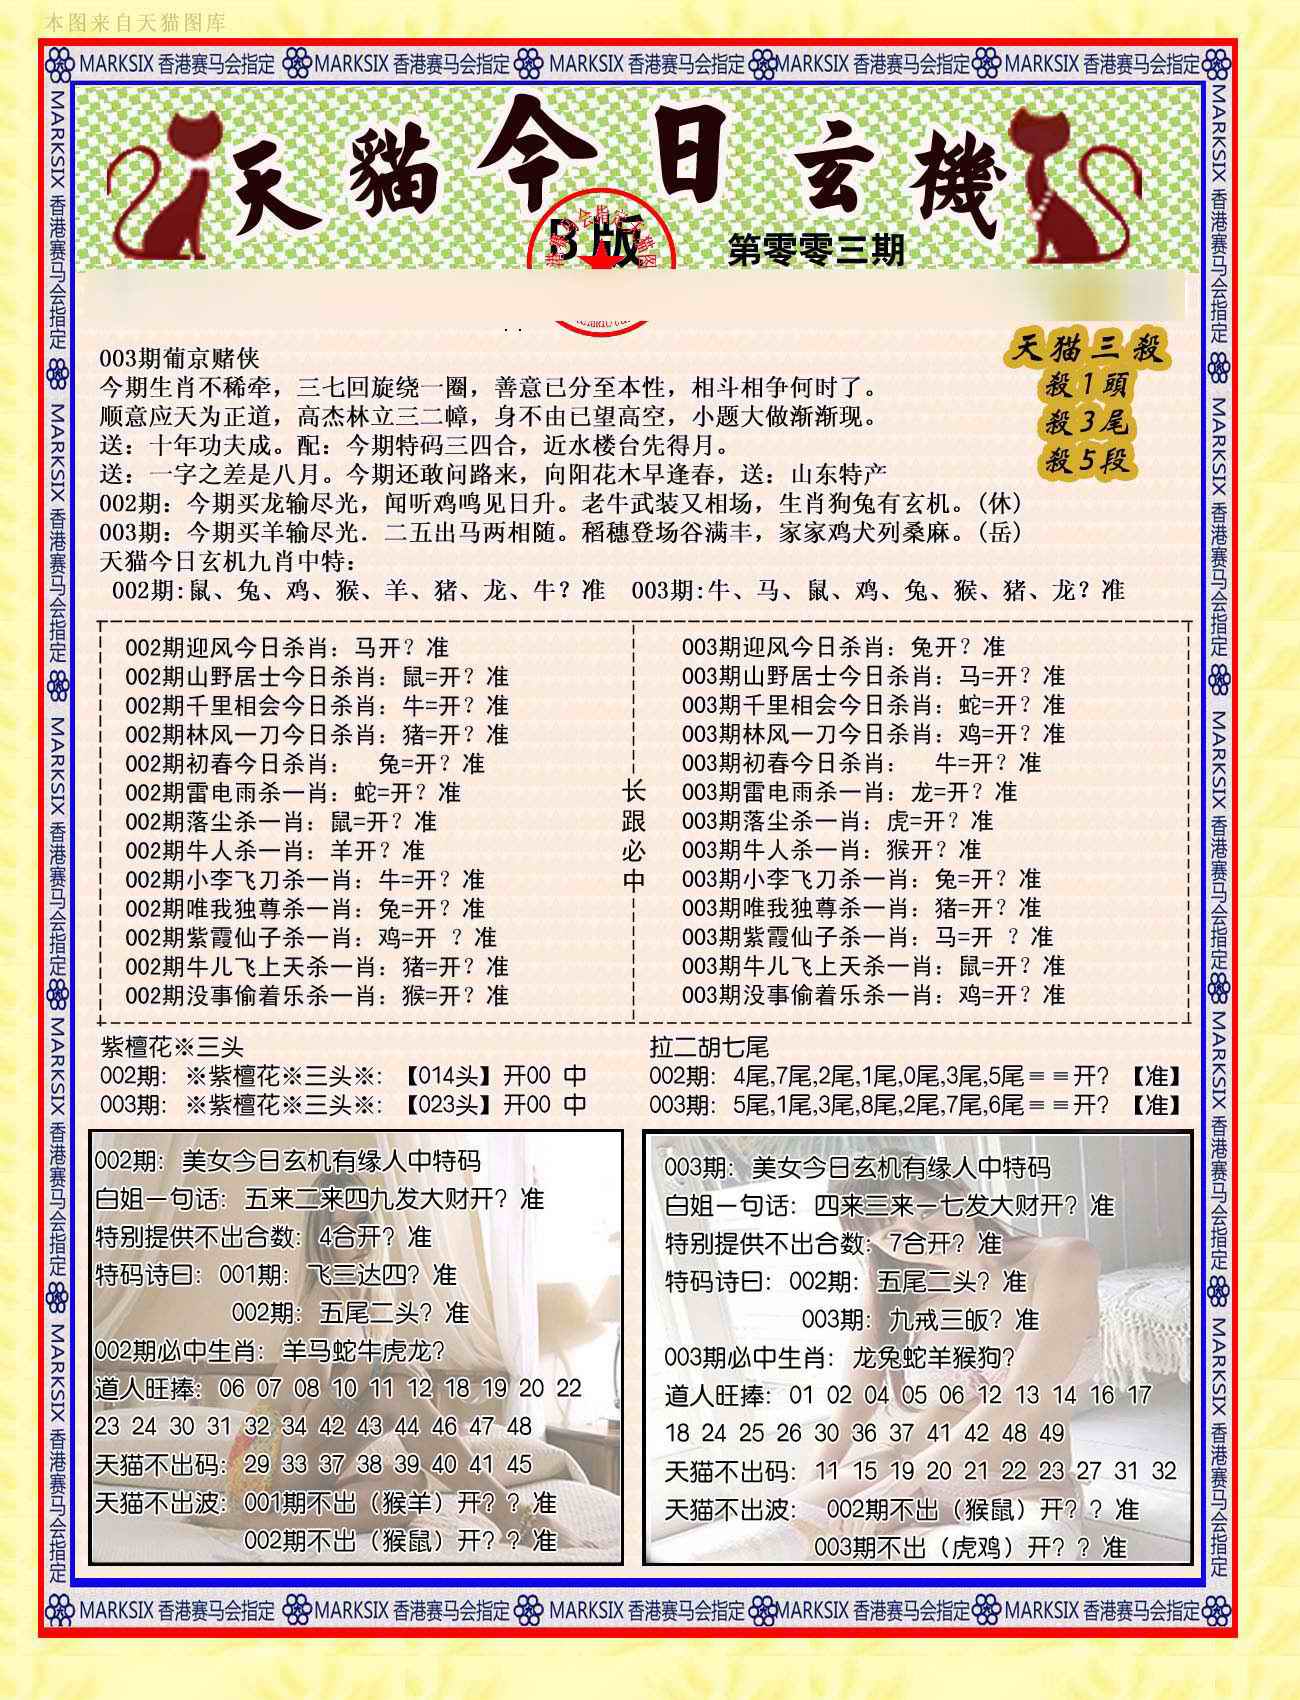 本图来自天猫图库
MARKSIX 香港赛马会指定 MARKSIX 香港赛马会指定 MARKSIX 香港赛马会指定 MARKSIX 香港赛马会指定 MARKSIX 香港赛马会指定
MARKSIX 香港赛马会指定 MARKSIX 香港赛马会指定 MARKSIX 香港赛马会指定 MARKSIX 香港赛马会指定 MARKSIX 香港赛马会指定
天貓今日玄機
B版
第零零三期
天猫三殺
殺1頭
殺3尾
殺5段
003期葡京赌侠
今期生肖不稀牵，三七回旋绕一圈，善意已分至本性，相斗相争何时了。
顺意应天为正道，高杰林立三二幛，身不由已望高空，小题大做渐渐现。
送：十年功夫成。配：今期特码三四合，近水楼台先得月。
送：一字之差是八月。今期还敢问路来，向阳花木早逢春，送：山东特产
002期：今期买龙输尽光，闻听鸡鸣见日升。老牛武装又相场，生肖狗兔有玄机。(休)
003期：今期买羊输尽光．二五出马两相随。稻穗登场谷满丰，家家鸡犬列桑麻。(岳)
天猫今日玄机九肖中特：
002期:鼠、兔、鸡、猴、羊、猪、龙、牛？准 003期:牛、马、鼠、鸡、兔、猴、猪、龙？准
002期迎风今日杀肖：马开？准
002期山野居士今日杀肖：鼠=开？准
002期千里相会今日杀肖：牛=开？准
002期林风一刀今日杀肖：猪=开？准
002期初春今日杀肖： 兔=开？准
002期雷电雨杀一肖：蛇=开？准
002期落尘杀一肖：鼠=开？准
002期牛人杀一肖：羊开？准
002期小李飞刀杀一肖：牛=开？准
002期唯我独尊杀一肖：兔=开？准
002期紫霞仙子杀一肖：鸡=开 ？准
002期牛儿飞上天杀一肖：猪=开？准
002期没事偷着乐杀一肖：猴=开？准
长跟必中
003期迎风今日杀肖：兔开？准
003期山野居士今日杀肖：马=开？准
003期千里相会今日杀肖：蛇=开？准
003期林风一刀今日杀肖：鸡=开？准
003期初春今日杀肖： 牛=开？准
003期雷电雨杀一肖：龙=开？准
003期落尘杀一肖：虎=开？准
003期牛人杀一肖：猴开？准
003期小李飞刀杀一肖：兔=开？准
003期唯我独尊杀一肖：猪=开？准
003期紫霞仙子杀一肖：马=开 ？准
003期牛儿飞上天杀一肖：鼠=开？准
003期没事偷着乐杀一肖：鸡=开？准
紫檀花※三头
002期：※紫檀花※三头※:【014头】开00 中
003期：※紫檀花※三头※:【023头】开00 中
拉二胡七尾
002期：4尾,7尾,2尾,1尾,0尾,3尾,5尾＝＝开？【准】
003期：5尾,1尾,3尾,8尾,2尾,7尾,6尾＝＝开？【准】
002期：美女今日玄机有缘人中特码
白姐一句话：五来二来四九发大财开？准
特别提供不出合数：4合开？准
特码诗曰：001期：飞三达四？准
002期：五尾二头？准
002期必中生肖：羊马蛇牛虎龙？
道人旺捧：06 07 08 10 11 12 18 19 20 22
23 24 30 31 32 34 42 43 44 46 47 48
天猫不出码：29 33 37 38 39 40 41 45
天猫不出波：001期不出（猴羊）开？？准
002期不出（猴鼠）开？？准
003期：美女今日玄机有缘人中特码
白姐一句话：四来三来一七发大财开？准
特别提供不出合数：7合开？准
特码诗曰：002期：五尾二头？准
003期：九戒三皈？准
003期必中生肖：龙兔蛇羊猴狗？
道人旺捧：01 02 04 05 06 12 13 14 16 17
18 24 25 26 30 36 37 41 42 48 49
天猫不出码：11 15 19 20 21 22 23 27 31 32
天猫不出波： 002期不出（猴鼠）开？？准
003期不出（虎鸡）开？？准
MARKSIX 香港赛马会指定 MARKSIX 香港赛马会指定 MARKSIX 香港赛马会指定 MARKSIX 香港赛马会指定 MARKSIX 香港赛马会指定
MARKSIX 香港赛马会指定 MARKSIX 香港赛马会指定 MARKSIX 香港赛马会指定 MARKSIX 香港赛马会指定 MARKSIX 香港赛马会指定